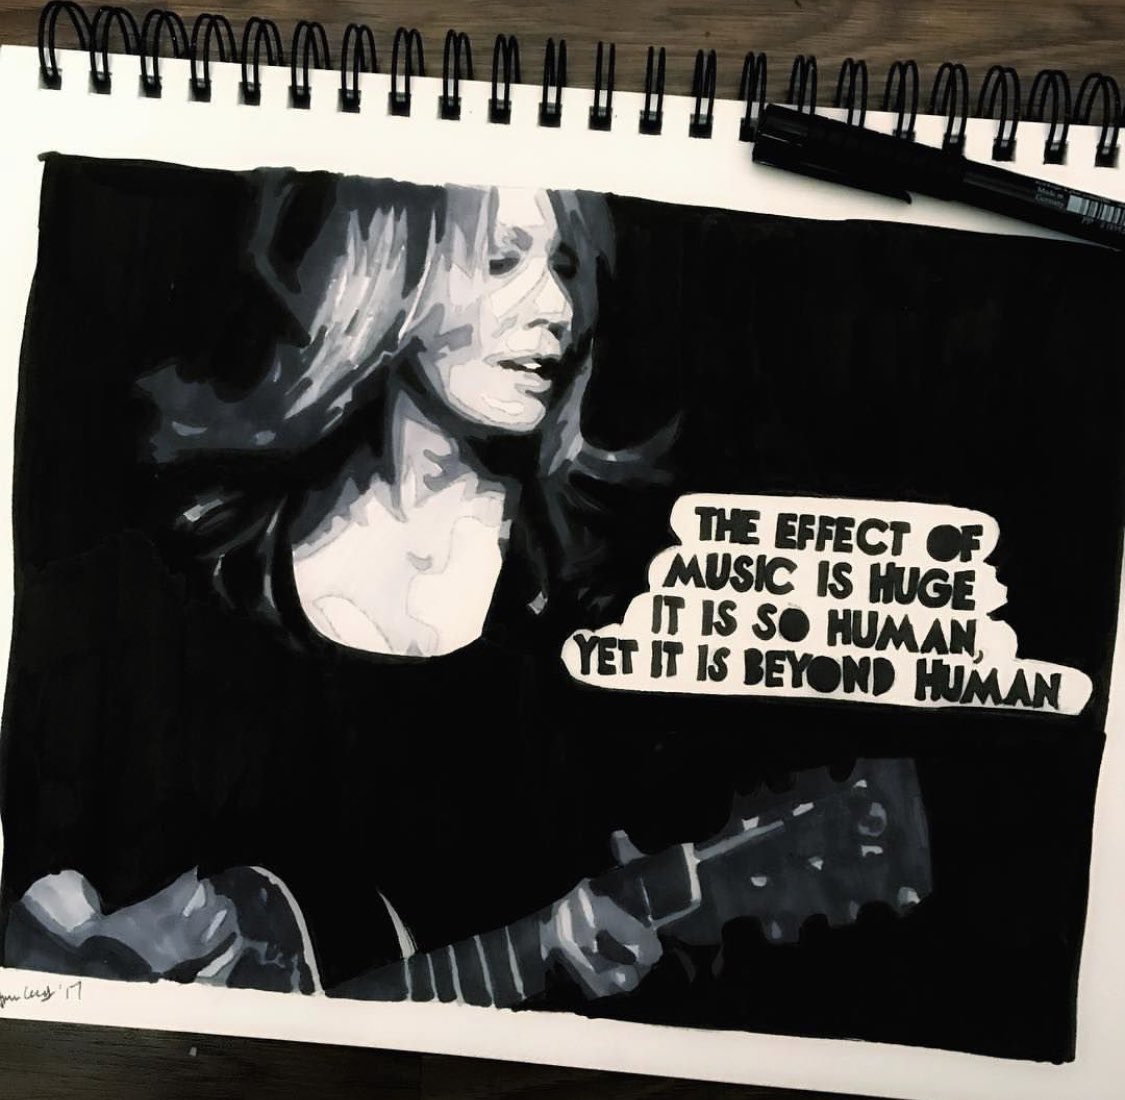 Made in
Germany
THE EFFECT OF
MUSIC IS HUGE
IT IS SO HUMAN,
YET IT IS BEYOND HUMAN
'17